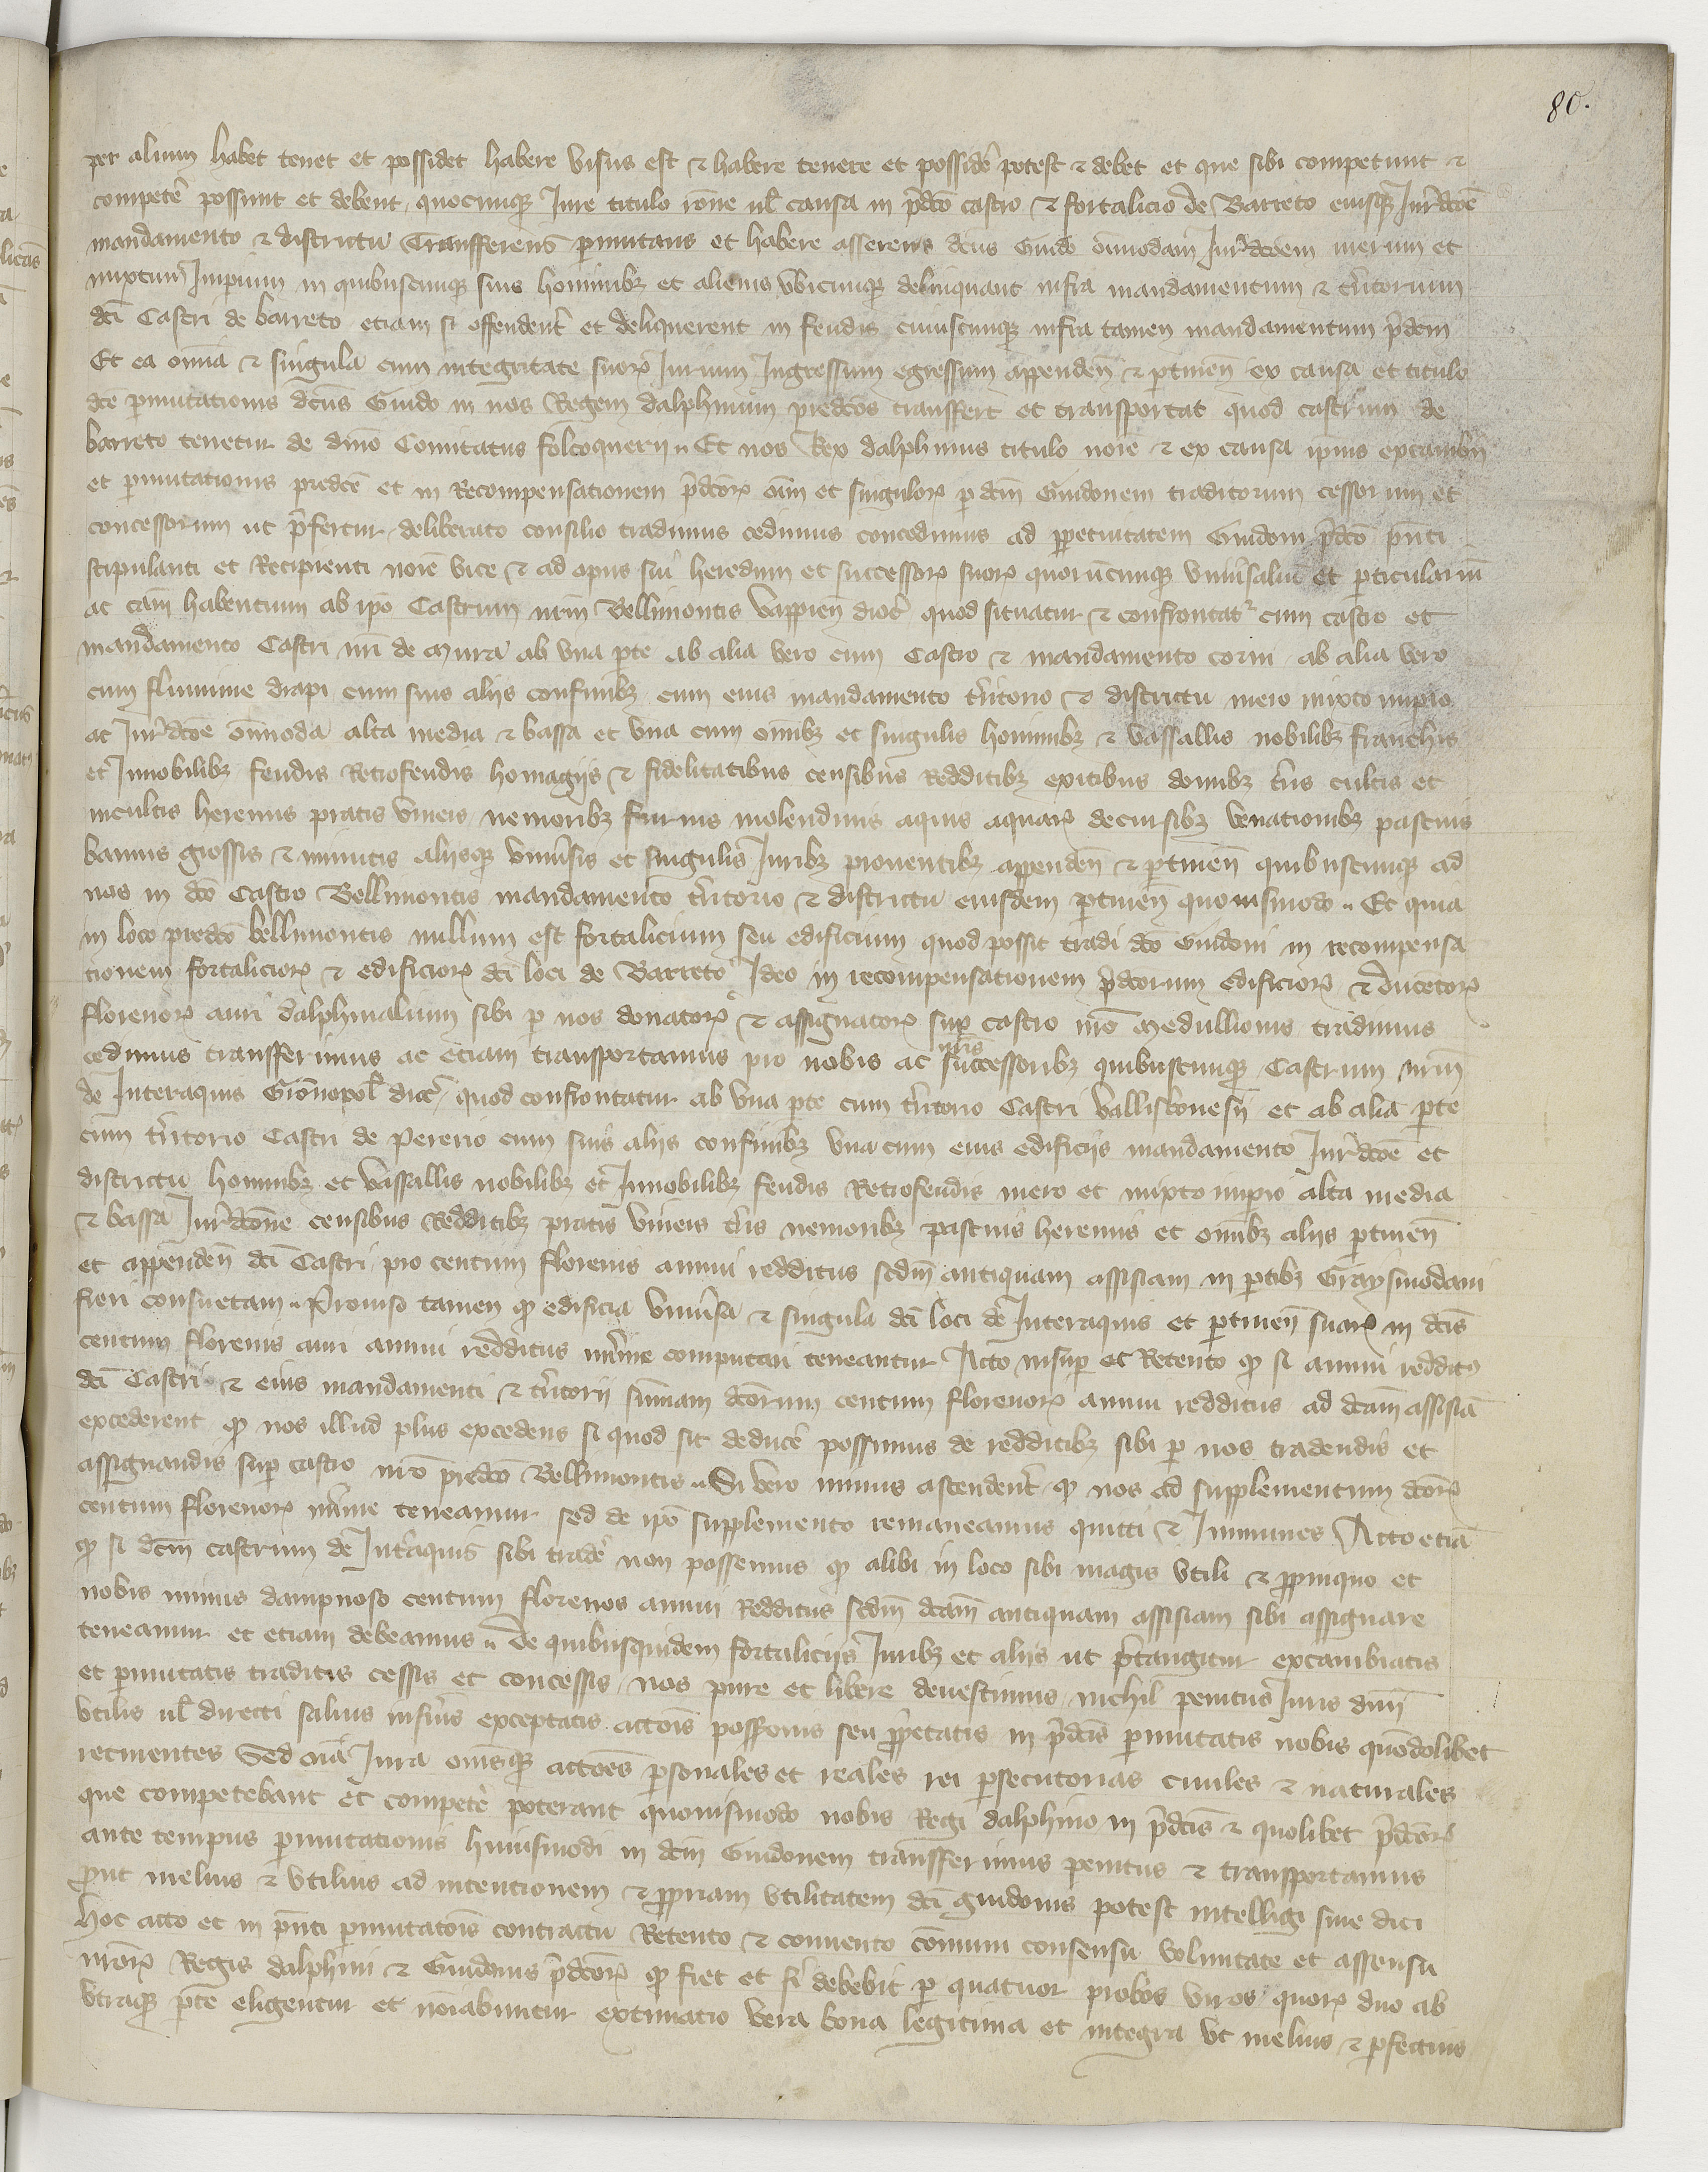 80.
per alium habet tenet et possidet habere visus est & habere tenere et possidē potest & debet et que sibi competunt &
competē possunt et debent, quocunqꝫ Jure titulo rōne ul̄ causa in p̄dcō castro & fortalicio de Barreto eiusqꝫ Jur̄dcōe
mandamento & districtu Transfferens p̱mutans et habere asserens dcūs Guido ōimodam Jur̄dcōem merum et
mixtum Imp̱ium in quibuscunqꝫ suis hominibꝫ et alienis vbicunqꝫ delinquant infra mandamentum & tr̄itorium
dc̄i Castri de barreto etiam si offenderent̄ et deliquerent in feudis cuiuscunqꝫ infra tamen mandamentum p̄dcm
Et ea om̄ia & singula cum integritate suoꝝ Jurium Ingressum egressum appendeñ & p̱tineñ ex causa et titulo
dcē p̱mutationis dcūs Guido in nos Regem dalphinum predcōs transffert et transportat quod castrum de
barreto tenetur de dn̄io Comitatus folcoquerii Et nos Rex dalphinus titulo noīe & ex causa ip̄ius excambii
et p̱mutationis predcē et in Recompensationem p̄dcōꝝ oīm et singuloꝝ p̱ dcm̄ Guidonem traditorum cessorum et
concessorum ut p̄fertur, deliberato consilio tradimus cedimus concedimus ad pp̱etuitatem Guidoni p̄dcō pn̄ti
stipulanti et Recipienti noīe vice & ad opus sui heredum et successoꝝ suoꝝ quorūcunqꝫ vniūsaliū et p̱ticulariū
ac cām habentium ab ip̄o Castrum nr̄m Bellimontis vappieñ dioc̄ quod situatur & confrontatr cum castro et
mandamento Castri nr̄i de Mura ab vna p̱te ab alia vero cum Castro & mandamento corm̄ ab alia vero
cum flumine drapi cum suis aliis confinibꝫ cum eius mandamento tr̄itorio & districtu mero mixto imp̱io
ac Jur̄dcōe ōimoda alta media & bassa et vna cum om̄ibꝫ et singulis hominibꝫ & vassallis nobilibꝫ franchis
et Innobilibꝫ feudis Retrofeudis homagiis & fidelitatibus censibus Redditibꝫ exitibus domibꝫ tr̄is cultis et
incultis heremis pratis vineis nemoribꝫ furnis molendinis aquis aquaꝝ decursibꝫ venationibꝫ pascuis
bannis grossis & minutis aliisqꝫ vniūsis et singulis Juribꝫ prouentibꝫ appendeñ & p̱tineñ quibuscunqꝫ ad
nos in dcō Castro Bellimontis mandamento tr̄itorio & districtu eiusdem p̱tineñ quouismodo Et quia
in loco predcō bellimontis nullum est fortalicium seu edificium quod possit tradi dcō Guidoni in recompensa
tionem fortalicioꝝ & edificioꝝ dc̄i loci de Barreto Ideo in recompensationem p̄dcorum edificioꝝ & ducētoꝝ
florenoꝝ auri dalphinalium sibi p̱ nos donatoꝝ & assignatoꝝ sup̱ castro nr̄o Medullionis tradimus
cedimus transfferimus ac etiam transportamus pro nobis ac nr̄is successoribꝫ quibuscunqꝫ Castrum nr̄m
de Interaquis Gr̄onopol̄ dioc̄ quod confrontatur ab vna p̱te cum tr̄itorio Castri vallisbonesii et ab alia p̱te
cum tr̄itorio Castri de Pererio cum suis aliis confinibꝫ vna cum eius edificiis mandamento Jur̄dcōe et
districtu hominibꝫ et vassallis nobilibꝫ et Innobilibꝫ feudis Retrofeudis mero et mixto imp̱io alta media
& bassa Jur̄dcōne censibus Redditibꝫ pratis vineis tr̄is nemoribꝫ pascuis heremis et om̄ibꝫ aliis p̱tineñ
et appendeñ dc̄i Castri pro centum florenis annui redditus scdm̄ antiquam assisiam in p̱tibꝫ Graysiuodani
fieri consuetam Prouiso tamen qꝫ edificia vniūsa & singula dc̄i loci de Interaquis et p̱tineñ suaꝝ in dcīs
centum florenis auri annui redditus mīme computari teneantur Acto insup̱ et Retento qꝫ si annui redditꝰ
dc̄i Castri & eius mandamenti & tr̄itorii sum̄am dcōrum centum florenoꝝ annui redditus ad dcām assisiā
excederent qꝫ nos illud plus excedens si quod sit deducē possimus de redditibꝫ sibi p̱ nos tradendis et
assignandis sup̱ castro nr̄o predcō Bellimontis Si vero minus ascendent̄ qꝫ nos ad supplementum dcōꝝ
centum florenoꝝ mīme teneamur sed de ip̄o supplemento remaneamus quitti & Immunes Acto etiā
qꝫ si dcm̄ castrum de Int̄aquis sibi tradē non possemus qꝫ alibi in loco sibi magis vtili & pp̱inquo et
nobis minus dampnoso centum florenos annui Redditus scdm̄ dcām antiquam assisiam sibi assignare
teneamur et etiam debeamus De quibusquidem fortaliciis Juribꝫ et aliis ut p̄tangitur excambiatis
et p̱mutatis traditis cessis et concessis, nos pure et libere deuestimus, nichil penitus Juris dn̄ii
vtilis ul̄ directi saluis insr̄tis exceptatis actōis possōnis seu pp̱etatis in p̄dcīs p̱mutatis nobis quōdolibet
retinentes Sed oīa Jura om̄sqꝫ actōes p̱sonales et reales rei p̱secutorias ciuiles & naturales
que competebant et competē poterant quouismodo nobis Regi dalphino in p̄dcīs & quolibet p̄dcōꝝ
ante tempus p̱mutationis huiusmodi in dcm̄ Guidonem transfferimus penitus & transportamus
prout melius & vtilius ad intentionem & pp̱riam vtilitatem dc̄i guidonis potest intelligi siue dici
hoc acto et in pn̄ti p̱mutatōis contractu Retento & conuento cōmuni consensu voluntate et assensu
nr̄oꝝ Regis dalphini & Guidonis p̄dcōꝝ qꝫ fiet et fi debebit p̱ quatuor probos viros quoꝝ duo ab
vtraqꝫ p̱te eligentur et noīabuntur extimatio vera bona legitima et integra vt melius & p̱fectius